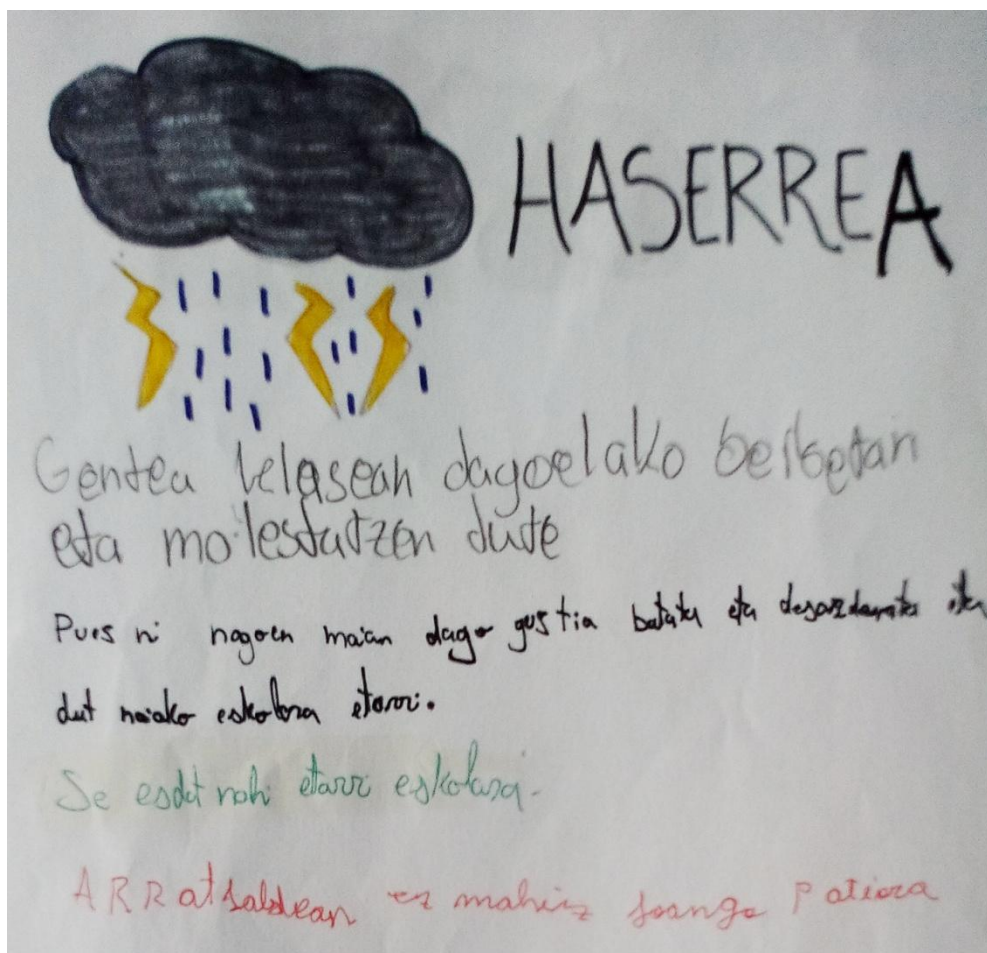 HASERREA
Gentea klasean dagoelako berbetan
eta molestatzen dute
Pues ni nagoen maian dago gustia batuta eta desordenatu eta
dut naiako eskolara etorri.
Se esdut nahi etorri eskolara.
ARRatsaldean ez mahiz joango Patiora